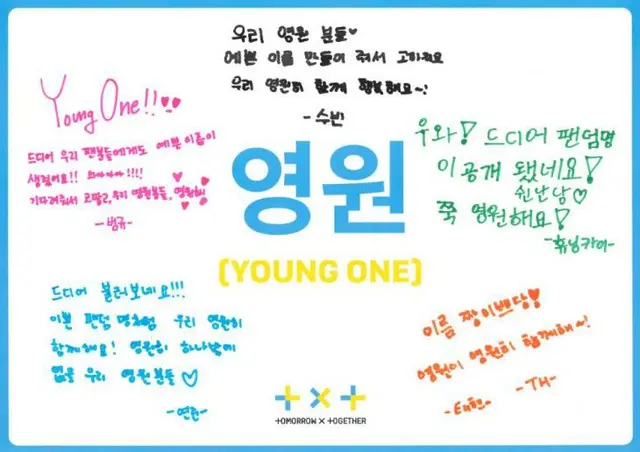 우리 영원 분들♡
예쁜 이름 만들어 줘서 고마워요
우리 영원히 함께 행복해요~!
-수빈
Young One!!♡♡
드디어 우리 팬분들에게도 예쁜 이름이
생겼어요!! 와아아아!!!!
기다려줘서 고맙고, 우리 영원분들, 영원히
-범규-
우와! 드디어 팬덤명
이 공개 됐네요!
신난당♡
쭉 영원해요!
-휴닝카이-
영원
(YOUNG ONE)
드디어 불러보네요!!!
이쁜 팬덤 명처럼 우리 영원히
함께해요! 영원히 하나밖에
없을 우리 영원분들♡
-연준-
이름 짱이쁘당!
영원이 영원히 함께해~!
-태현- -TH-
TOMORROW X TOGETHER